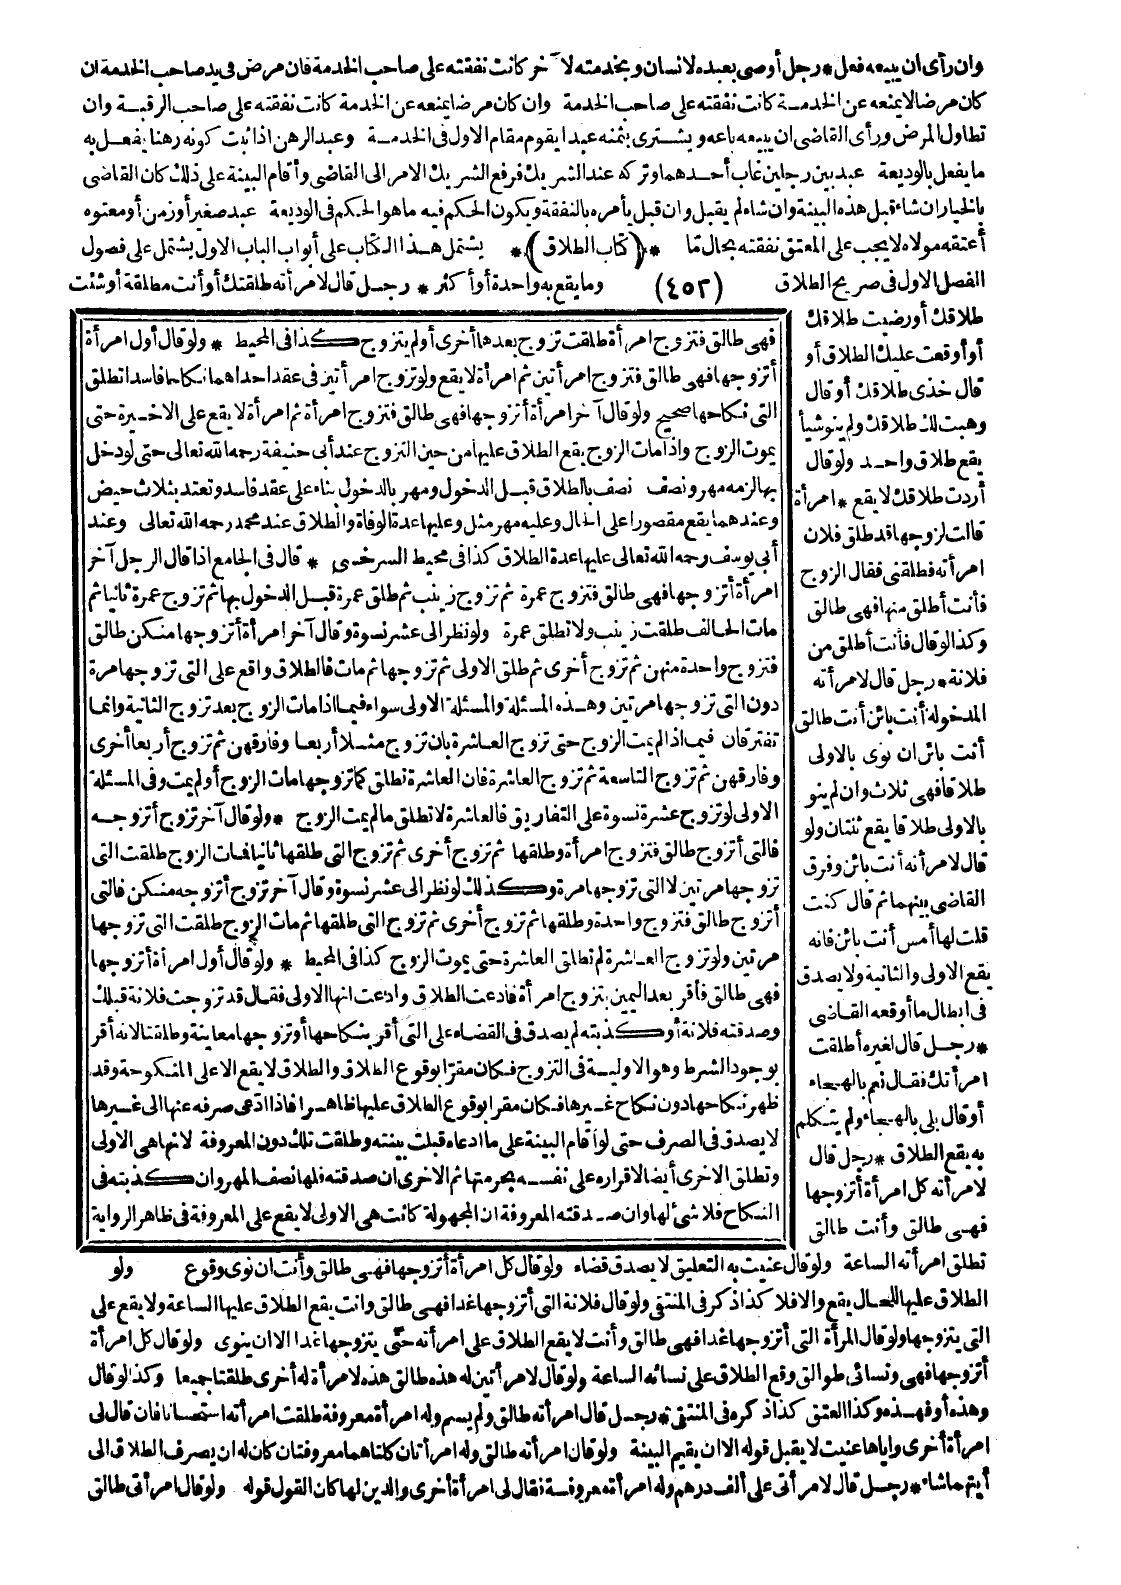 وان رأى ان يبيعه فعل * رجل أوصى بعبده لانسان وبخدمته لآخر كانت نفقته على صاحب الخدمة فان مرض فى يد صاحب الخدمة ان
كان مرضا لا يمنعه عن الخدمة كانت نفقته على صاحب الخدمة وان كان مرضا يمنعه عن الخدمة كانت نفقته على صاحب الرقبة وان
تطاول المرض ورأى القاضى ان يبيعه باعه ويشترى بثمنه عبدا يقوم مقام الاول فى الخدمة وعبد الرهن اذا ثبت كونه رهنا يفعل به
ما يفعل بالوديعة عبد بين رجلين غاب أحدهما وتركه عند الشريك فرفع الشريك الامر الى القاضى وأقام البينة على ذلك كان القاضى
بالخيار ان شاء قبل هذه البينة وان شاء لم يقبل وان قبل يأمره بالنفقة ويكون الحكم فيه ما هو الحكم فى الوديعة عبد صغير أو زمن أو معتوه
أعتقه مولاه لا يجب على المعتق نفقته بحال تما *(كتاب الطلاق)* يشتمل هذا الكتاب على أبواب الباب الاول يشتمل على فصول
الفصل الاول فى صريح الطلاق (٤٥٢) وما يقع به واحدة أو أكثر * رجل قال لامرأته طلقتك أو أنت مطلقة أو شئت
طلاقك أو رضيت طلاقك
أو أوقعت عليك الطلاق أو
قال خذى طلاقك أو قال
وهبت لك طلاقك ولم ينو شيأ
يقع طلاق واحد ولو قال
أردت طلاقك لا يقع * امرأة
قالت لزوجها قد طلق فلان
امرأته فطلقنى فقال الزوج
فأنت أطلق منها فهى طالق
وكذا لو قال فأنت أطلق من
فلانة * رجل قال لامرأته
المدخولة أنت بائن أنت طالق
أنت بائن ان نوى بالاولى
طلاقا فهى ثلاث وان لم ينو
بالاولى طلاقا يقع ثنتان ولو
قال لامرأته أنت بائن وفرق
القاضى بينهما ثم قال كنت
قلت لها أمس أنت بائن فانه
يقع الاولى والثانية ولا يصدق
فى ابطال ما أوقعه القاضى
* رجل قال لغيره أطلقت
امرأتك فقال نعم بالهجاء
أو قال بلى بالهجاء ولم يتكلم
به يقع الطلاق * رجل قال
لامرأته كل امرأة أتزوجها
فهى طالق وأنت طالق
فهى طالق فتزوج امرأة طلقت تزوج بعدها أخرى أو لم يتزوج كذا فى المحيط * ولو قال أول امرأة
أتزوجها فهى طالق فتزوج امرأتين ثم امرأة لا يقع ولو تزوج امرأتين فى عقد احداهما نكاحا فاسدا تطلق
التى نكاحها صحيح ولو قال آخر امرأة أتزوجها فهى طالق فتزوج امرأة ثم امرأة لا يقع على الاخيرة حتى
يموت الزوج واذا مات الزوج يقع الطلاق عليها من حين التزوج عند أبى حنيفة رحمه الله تعالى حتى لو دخل
بها لزمه مهر ونصف نصف بالطلاق قبل الدخول ومهر بالدخول بناء على عقد فاسد وتعتد بثلاث حيض
وعندهما يقع مقصورا على الحال وعليه مهر مثل وعليها عدة الوفاة والطلاق عند محمد رحمه الله تعالى وعند
أبى يوسف رحمه الله تعالى عليها عدة الطلاق كذا فى محيط السرخسى * قال فى الجامع اذا قال الرجل آخر
امرأة أتزوجها فهى طالق فتزوج عمرة ثم تزوج زينب ثم طلق عمرة قبل الدخول بها ثم تزوج عمرة ثانيا ثم
مات الحالف طلقت زينب ولا تطلق عمرة ولو نظر الى عشر نسوة وقال آخر امرأة أتزوجها منكن طالق
فتزوج واحدة منهن ثم تزوج أخرى ثم طلق الاولى ثم تزوجها ثم مات فالطلاق واقع على التى تزوجها مرة
دون التى تزوجها مرتين وهذه المسئلة والمسئلة الاولى سواء فيما اذا مات الزوج بعد تزوج الثانية وانما
تفترقان فيما اذا لم يمت الزوج حتى تزوج العاشرة بان تزوج مثلا أربعا وفارقهن ثم تزوج أربعا أخرى
وفارقهن ثم تزوج التاسعة ثم تزوج العاشرة فان العاشرة تطلق كما تزوجها مات الزوج أو لم يمت وفى المسئلة
الاولى لو تزوج عشرة نسوة على التفاريق فالعاشرة لا تطلق ما لم يمت الزوج * ولو قال آخر تزوج أتزوجه
فالتى أتزوج طالق فتزوج امرأة وطلقها ثم تزوج أخرى ثم تزوج التى طلقها ثانيا فمات الزوج طلقت التى
تزوجها مرتين لا التى تزوجها مرة وكذلك لو نظر الى عشر نسوة وقال آخر تزوج أتزوجه منكن فالتى
أتزوج طالق فتزوج واحدة وطلقها ثم تزوج أخرى ثم تزوج التى طلقها ثم مات الزوج طلقت التى تزوجها
مرتين ولو تزوج العاشرة لم تطلق العاشرة حتى يموت الزوج كذا فى المحيط * ولو قال أول امرأة أتزوجها
فهى طالق فأقر بعد اليمين بتزوج امرأة فادعت الطلاق وادعت انها الاولى فقال قد تزوجت فلانة قبلك
وصدقته فلانة أو كذبته لم يصدق فى القضاء على التى أقر بنكاحها أو تزوجها معاينة وطلقتا لانه أقر
بوجود الشرط وهو الاولية فى التزوج فكان مقرا بوقوع الطلاق والطلاق لا يقع الا على المنكوحة وقد
ظهر نكاحها دون نكاح غيرها فكان مقرا بوقوع الطلاق عليها ظاهرا فاذا ادعى صرفه عنها الى غيرها
لا يصدق فى الصرف حتى لو أقام البينة على ما ادعاه قبلت بينته وطلقت تلك دون المعروفة لانها هى الاولى
وتطلق الاخرى أيضا لاقراره على نفسه بحرمتها ثم الاخرى ان صدقته فلها نصف المهر وان كذبته فى
النكاح فلا شئ لها وان صدقته المعروفة ان المجهولة كانت هى الاولى لا يقع على المعروفة فى ظاهر الرواية
ولو
تطلق امرأته الساعة ولو قال عنيت به التعليق لا يصدق قضاء ولو قال كل امرأة أتزوجها فهى طالق وأنت ان نوى وقوع
الطلاق عليها للحال يقع والا فلا كذا ذكر فى المنتقى ولو قال فلانة التى أتزوجها غدا فهى طالق وانت يقع الطلاق عليها الساعة ولا يقع على
التى يتزوجها ولو قال المرأة التى أتزوجها غدا فهى طالق وأنت لا يقع الطلاق على امرأته حتى يتزوجها غدا الا ان ينوى ولو قال كل امرأة
أتزوجها فهى ونسائى طوالق وقع الطلاق على نسائه الساعة ولو قال لامرأتين له هذه طالق هذه لامرأة له أخرى طلقتا جميعا وكذا لو قال
وهذه أو فهذه وكذا العتق كذا ذكره فى المنتقى * رجل قال امرأته طالق ولم يسم وله امرأة معروفة طلقت امرأته استحسانا فان قال لى
امرأة أخرى واياها عنيت لا يقبل قوله الا ان يقيم البينة ولو قال امرأته طالق وله امرأتان كلتاهما معروفتان كان له ان يصرف الطلاق الى
أيتهما شاء * رجل قال لامرأتى على ألف درهم وله امرأة معروفة فقال لى امرأة أخرى والدين لها كان القول قوله ولو قال امرأتى طالق